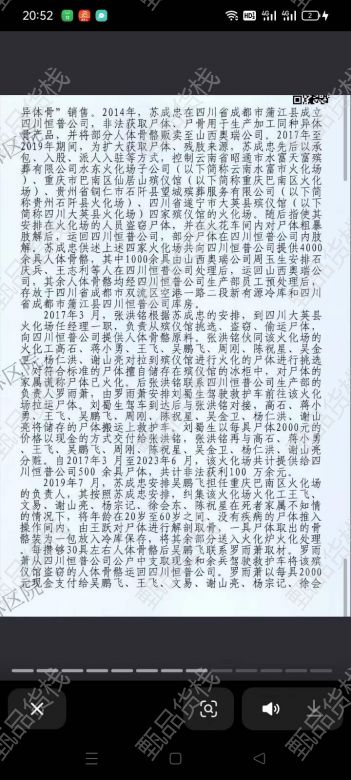 20:52
异体骨”销售。2014年,苏成忠在四川省成都市蒲江县成立
四川恒普公司,非法获取尸体、尸骨用于生产加工同种异体
骨产品,并将部分人体骨骼贩卖至山西奥瑞公司。2017年至
2019年期间,为扩大获取尸体、残肢来源,苏成忠先后以承
包、入股、派人入驻等方式,控制云南省昭通市水富天富殡
葬有限公司水东火化场子公司(以下简称云南水富火化
场)、重庆市巴南区仙居山歼殡仪馆(以下简称重庆巴南区火化
场)、贵州省铜仁市石阡县望城殡葬服务有限公司(以下简
称贵州石阡县火化场)、四川省遂宁市大英县殡仪馆(以下
简称四川大英县火化场)四家殡仪馆的火化场,随后指使其
安排在火化场的人员盗窃尸体,并在火花车间内对尸体粗暴
肢解后,运回四川恒普公司,部分尸体在四川恒普公司内肢
解。苏成忠供述上述四家火化场共向四川恒普公司提供4000
余具人体骨骼,其中1000余具由山西奥瑞公司周玉生安排石
庆兵、王志利等人在四川恒普公司处理后,运回山西奥瑞公
司,其余人体骨骼均经四川恒普公司生产部员工预处理后,
存放于四川省成都市双流区空港一路二段新有源冷库和四川
省成都市蒲江县四川恒普公司库房。
2017年3月,张洪铭根据苏成忠的安排,到四川大英县
火化场任经理一职,负责从殡仪馆挑选、盗窃、偷运尸体,
向四川恒普公司提供人体骨骼原料。张洪铭伙同该火化场的
火化工高石、蒋小勇、王飞、吴鹏飞、周刚、陈祝星、吴金
卫、杨仁洪、谢山亮对拉到殡仪馆进行火化的人体进行挑选
,对符合标准的尸体擅自储存在殡仪馆的冰柜中,对尸体的
家属谎称尸体己火化。后张洪铭联系四川恒普公司生产部的
负责人罗雨萧,由罗雨萧安排刘蜀生驾驶救护车前往该火化
场拉运尸体。刘蜀生驾车到达后与张洪铭对接,高石、蒋小
勇、王飞、吴鹏飞、周刚、陈祝星、吴金卫、杨仁洪、谢山
亮将储存的尸体搬运上救护车,刘蜀生以每具尸体2000元的
价格以现金的方式交付给张洪铭,张洪铭再与高石、蒋小勇
、王飞、吴鹏飞、周刚、陈祝星、吴金卫、杨仁洪、谢山亮
分赃。自2017年3月至2023年6月,该火化场共计提供给四
川恒普公司500余具尸体,共计非法获利100万余元。
2019年7月,苏成忠安排吴鹏飞担任重庆巴南区火化场
的负责人,其按照苏成忠安排,纠集该火化场火化工王飞、
文易、谢山亮、杨宗记、徐会东、陈祝星在死者家属不知情
的情况下,将年龄在20岁至60岁之间、没有疾病的尸体推入
操作间内,由王跃对尸体进行解剖取骨,一具尸体取出的骨
骼装为一包放入冷库保存,将其余部分送入火化炉火化处理
。每攒够30具左右人体骨骼后吴鹏飞联系罗雨萧取材。罗雨
萧从四川恒普公司公户中支取现金和余兵驾驶救护车将该殡
仪馆盗窃的人体骨骼运回四川恒普公司,罗雨萧以每具2000
元现金支付给吴鹏飞、王飞、文易、谢山亮、杨宗记、徐会
甄品货栈